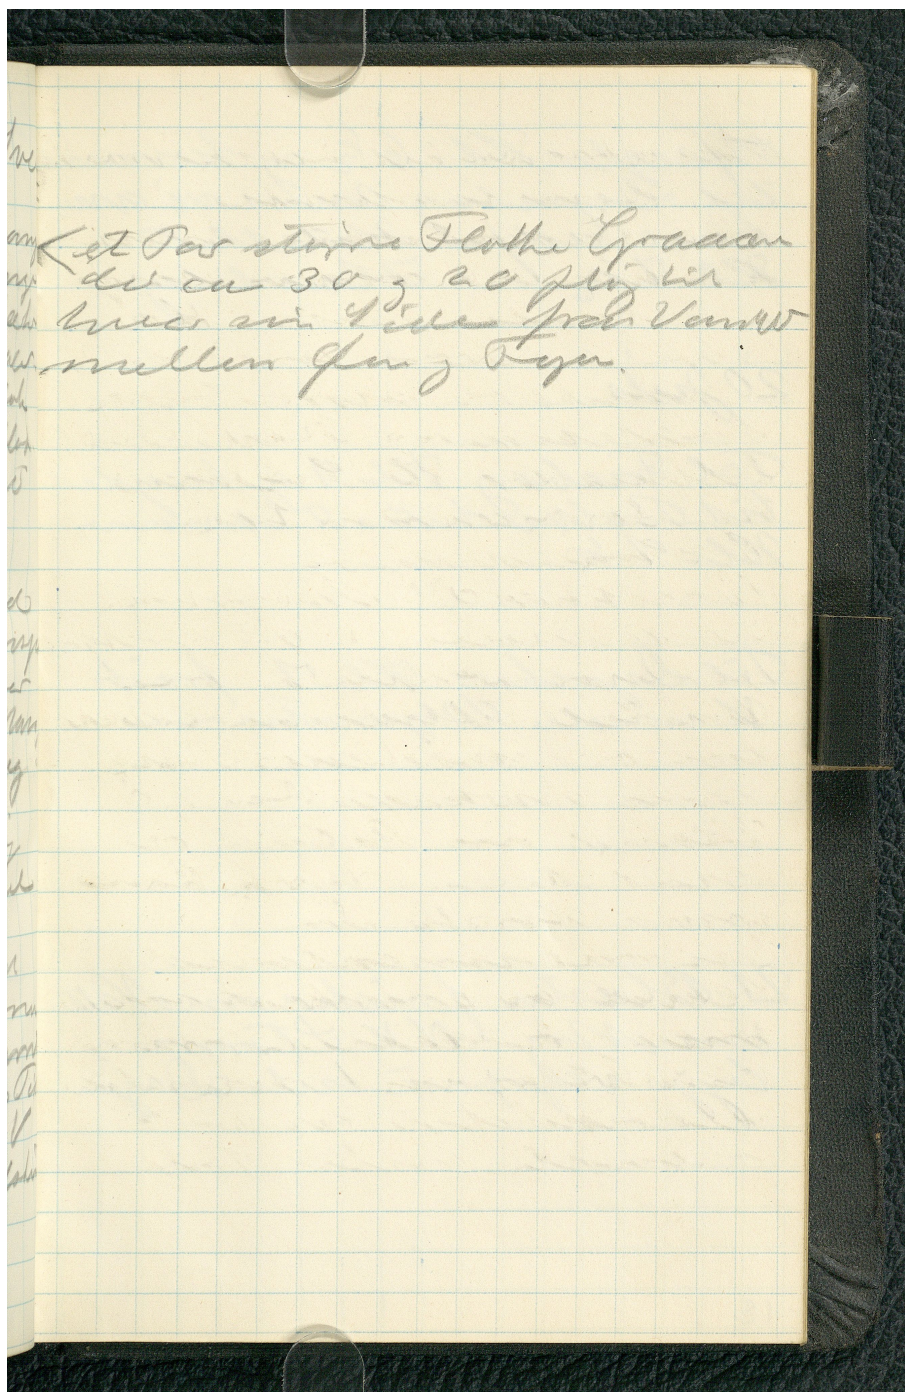 et Par større Flokke Graaæn
der ca 30 og 20 fløj til
hver sin Side fra Vandet
mellem Øen og Fyn.